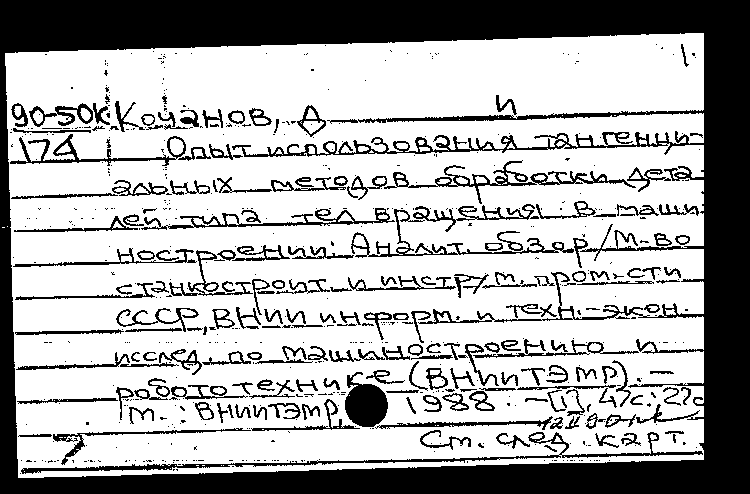 1.
90-50к Кочанов, Д И
174 Опыт использования тангенци-
альных методов обработки дета-
лей типа тел вращения в маши-
ностроении: Аналит. обзор / М-во
станкостроит. и инструм. пром-сти
СССР, ВНИИ информ. и техн.-экон.
исслед. по машиностроению и
робототехнике (ВНИИТЭМР). —
М. : ВНИИТЭМР, 1988. - [1], 47с.; 22с
См. след. карт.